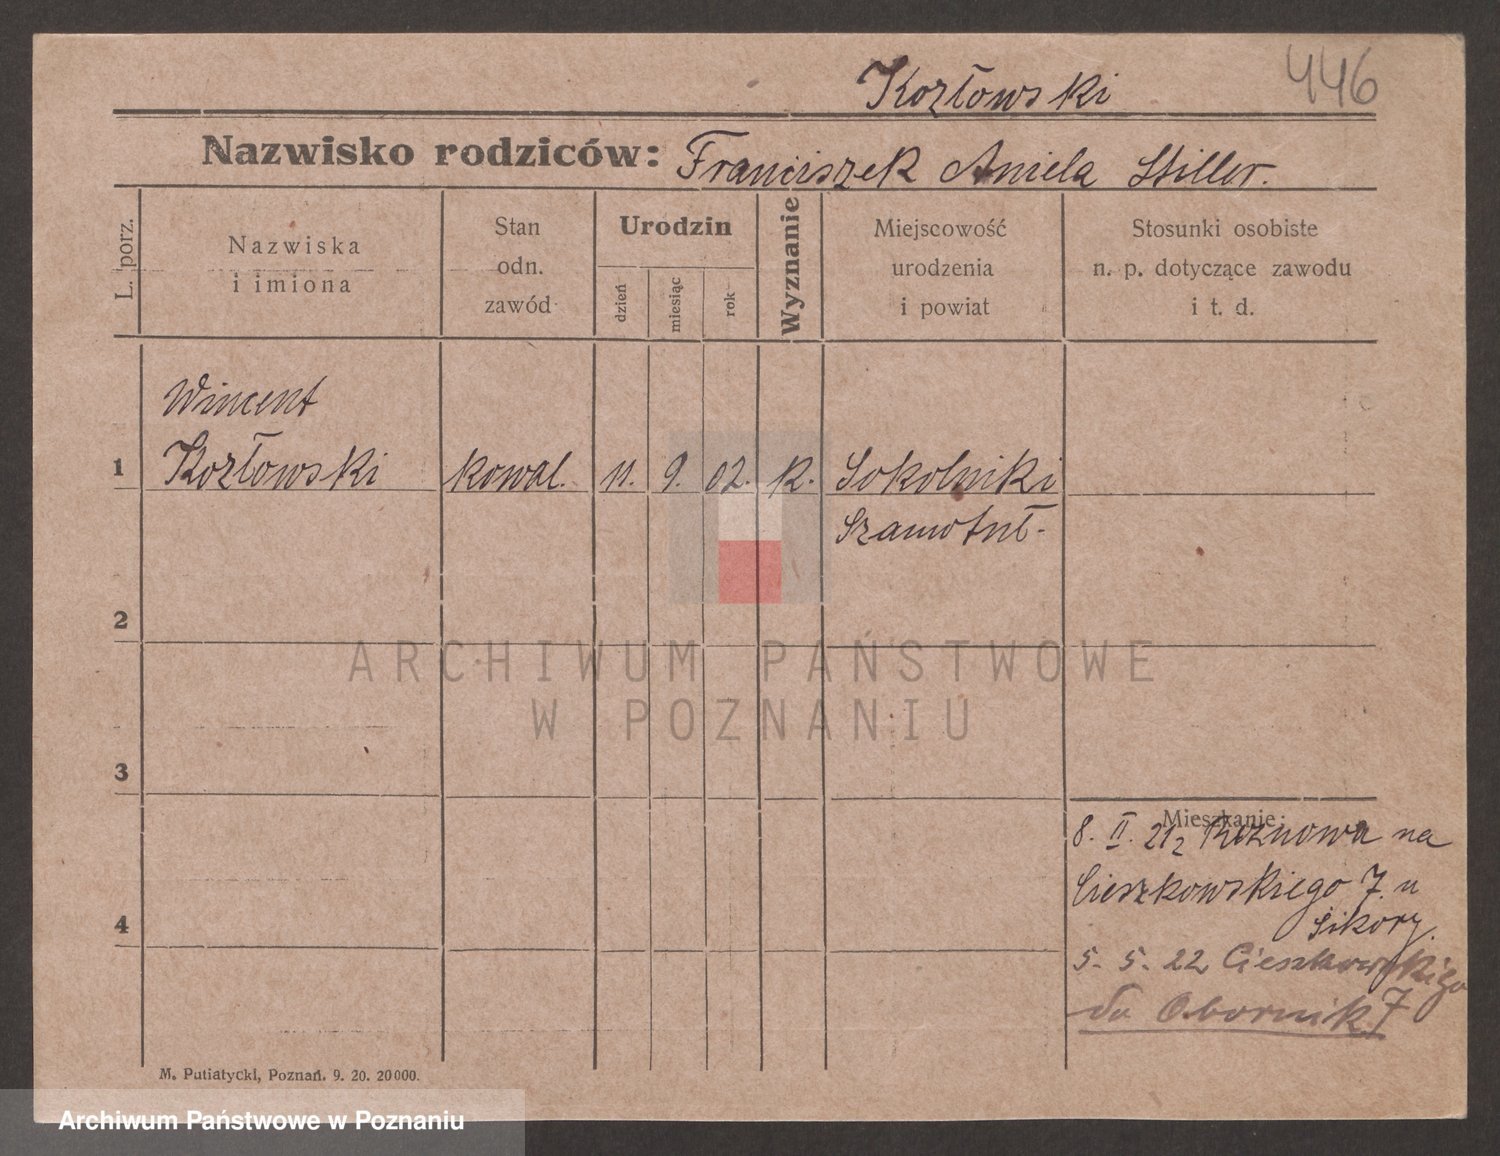 446
Kozłowski
Nazwisko rodziców: Franciszek Aniela Stiller.
L. porz.
Nazwiska
i imiona
Stan
odn.
zawód
Urodzin
dzień
miesiąc
rok
Wyznanie
Miejscowość
urodzenia
i powiat
Stosunki osobiste
n. p. dotyczące zawodu
i t. d.
Wincent
1 Kozłowski kowal. 11. 9. 02. k. Sokolniki
Szamotuł-
2
ARCHIWUM PAŃSTWOWE
W POZNANIU
3
Mieszkanie:
8. II. 21 z Rożnowa na
Cieszkowskiego 7. u
Sikory.
4
5. 5. 22 Cieszkowskiego 7
do Obornik
M. Putiatycki, Poznań. 9. 20. 20000.
Archiwum Państwowe w Poznaniu